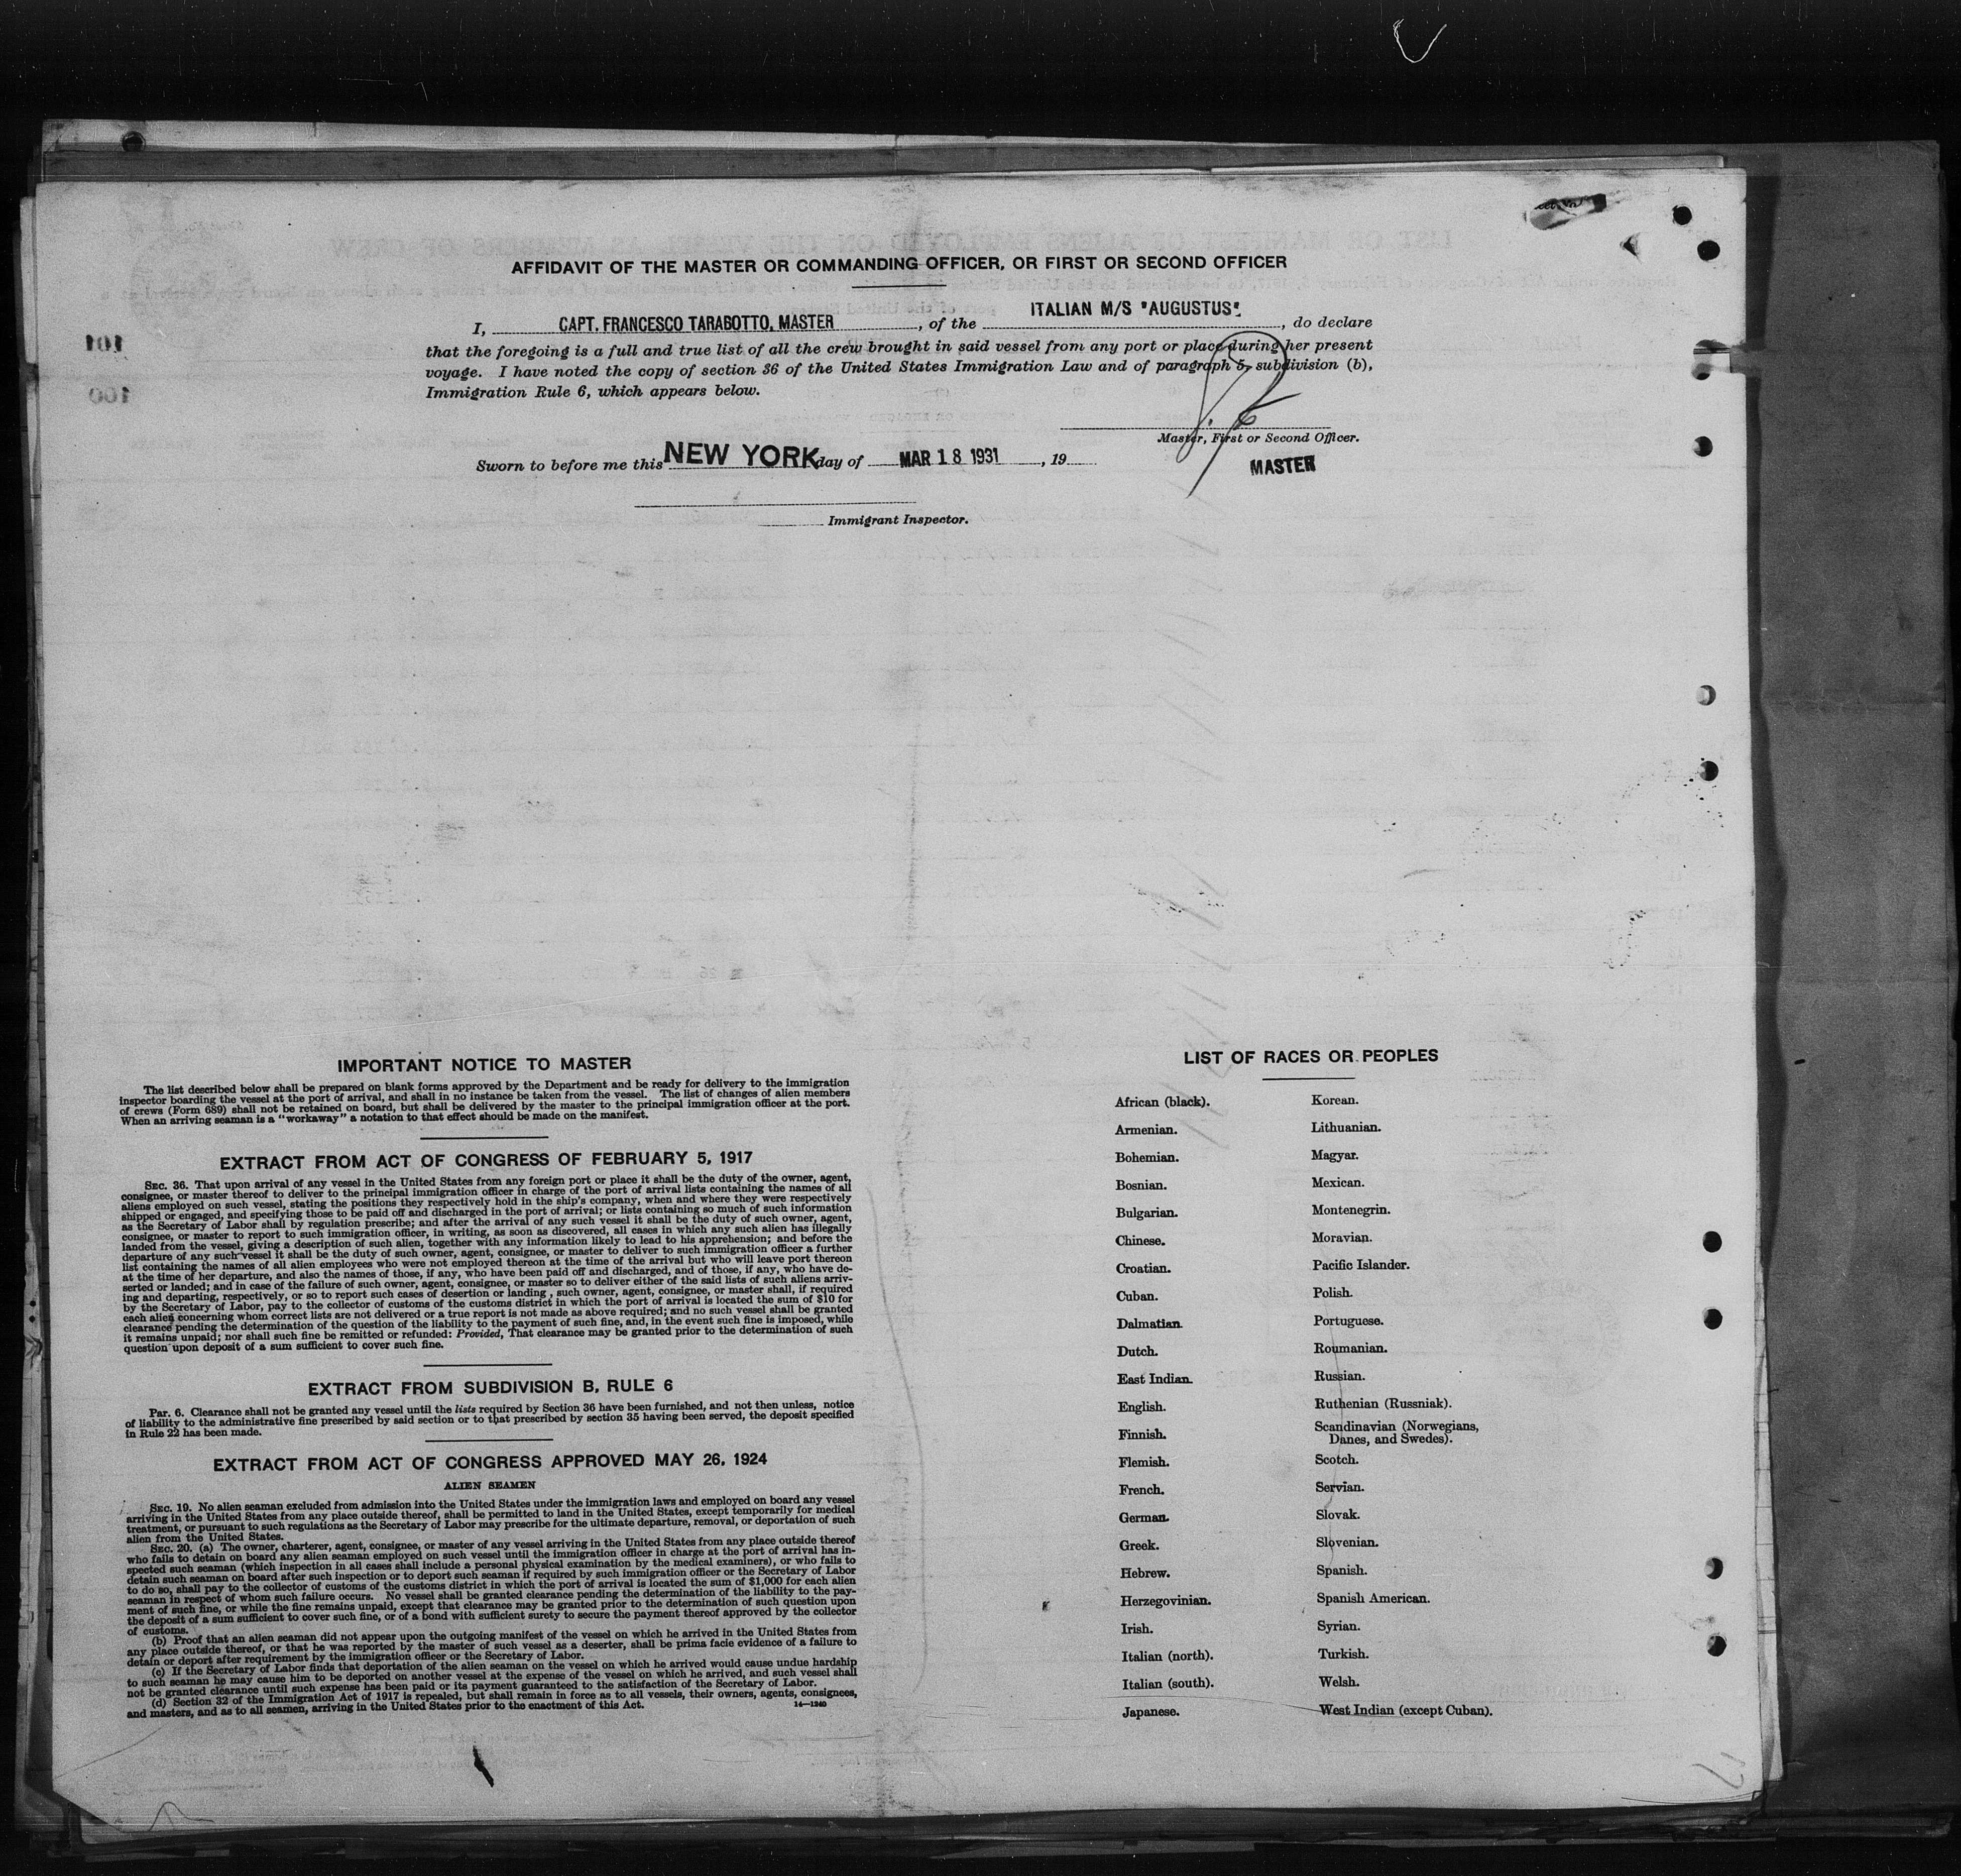 AFFIDAVIT OF THE MASTER OR COMMANDING OFFICER, OR FIRST OR SECOND OFFICER
I, CAPT. FRANCESCO TARABOTTO, MASTER, of the ITALIAN M/S "AUGUSTUS", do declare
that the foregoing is a full and true list of all the crew brought in said vessel from any port or place during her present
voyage. I have noted the copy of section 36 of the United States Immigration Law and of paragraph 5, subdivision (b),
Immigration Rule 6, which appears below.
Master, First or Second Officer.
Sworn to before me this NEW YORK day of MAR 18 1931, 19
MASTER
Immigrant Inspector.
101
100
IMPORTANT NOTICE TO MASTER
The list described below shall be prepared on blank forms approved by the Department and be ready for delivery to the immigration
inspector boarding the vessel at the port of arrival, and shall in no instance be taken from the vessel. The list of changes of alien members
of crews (Form 689) shall not be retained on board, but shall be delivered by the master to the principal immigration officer at the port.
When an arriving seaman is a "workaway" a notation to that effect should be made on the manifest.
EXTRACT FROM ACT OF CONGRESS OF FEBRUARY 5, 1917
SEC. 36. That upon arrival of any vessel in the United States from any foreign port or place it shall be the duty of the owner, agent,
consignee, or master thereof to deliver to the principal immigration officer in charge of the port of arrival lists containing the names of all
aliens employed on such vessel, stating the positions they respectively hold in the ship's company, when and where they were respectively
shipped or engaged, and specifying those to be paid off and discharged in the port of arrival; or lists containing so much of such information
as the Secretary of Labor shall by regulation prescribe; and after the arrival of any such vessel it shall be the duty of such owner, agent,
consignee, or master to report to such immigration officer, in writing, as soon as discovered, all cases in which any such alien has illegally
landed from the vessel, giving a description of such alien, together with any information likely to lead to his apprehension; and before the
departure of any such vessel it shall be the duty of such owner, agent, consignee, or master to deliver to such immigration officer a further
list containing the names of all alien employees who were not employed thereon at the time of the arrival but who will leave port thereon
at the time of her departure, and also the names of those, if any, who have been paid off and discharged, and of those, if any, who have de-
serted or landed; and in case of the failure of such owner, agent, consignee, or master so to deliver either of the said lists of such aliens arriv-
ing and departing, respectively, or so to report such cases of desertion or landing , such owner, agent, consignee, or master shall, if required
by the Secretary of Labor, pay to the collector of customs of the customs district in which the port of arrival is located the sum of $10 for
each alien concerning whom correct lists are not delivered or a true report is not made as above required; and no such vessel shall be granted
clearance pending the determination of the question of the liability to the payment of such fine, and, in the event such fine is imposed, while
it remains unpaid; nor shall such fine be remitted or refunded: Provided, That clearance may be granted prior to the determination of such
question upon deposit of a sum sufficient to cover such fine.
EXTRACT FROM SUBDIVISION B, RULE 6
Par. 6. Clearance shall not be granted any vessel until the lists required by Section 36 have been furnished, and not then unless, notice
of liability to the administrative fine prescribed by said section or to that prescribed by section 35 having been served, the deposit specified
in Rule 22 has been made.
EXTRACT FROM ACT OF CONGRESS APPROVED MAY 26, 1924
ALIEN SEAMEN
SEC. 19. No alien seaman excluded from admission into the United States under the immigration laws and employed on board any vessel
arriving in the United States from any place outside thereof, shall be permitted to land in the United States, except temporarily for medical
treatment, or pursuant to such regulations as the Secretary of Labor may prescribe for the ultimate departure, removal, or deportation of such
alien from the United States.
SEC. 20. (a) The owner, charterer, agent, consignee, or master of any vessel arriving in the United States from any place outside thereof
who fails to detain on board any alien seaman employed on such vessel until the immigration officer in charge at the port of arrival has in-
spected such seaman (which inspection in all cases shall include a personal physical examination by the medical examiners), or who fails to
detain such seaman on board after such inspection or to deport such seaman if required by such immigration officer or the Secretary of Labor
to do so, shall pay to the collector of customs of the customs district in which the port of arrival is located the sum of $1,000 for each alien
seaman in respect of whom such failure occurs. No vessel shall be granted clearance pending the determination of the liability to the pay-
ment of such fine, or while the fine remains unpaid, except that clearance may be granted prior to the determination of such question upon
the deposit of a sum sufficient to cover such fine, or of a bond with sufficient surety to secure the payment thereof approved by the collector
of customs.
(b) Proof that an alien seaman did not appear upon the outgoing manifest of the vessel on which he arrived in the United States from
any place outside thereof, or that he was reported by the master of such vessel as a deserter, shall be prima facie evidence of a failure to
detain or deport after requirement by the immigration officer or the Secretary of Labor.
(c) If the Secretary of Labor finds that deportation of the alien seaman on the vessel on which he arrived would cause undue hardship
to such seaman he may cause him to be deported on another vessel at the expense of the vessel on which he arrived, and such vessel shall
not be granted clearance until such expense has been paid or its payment guaranteed to the satisfaction of the Secretary of Labor.
(d) Section 32 of the Immigration Act of 1917 is repealed, but shall remain in force as to all vessels, their owners, agents, consignees,
and masters, and as to all seamen, arriving in the United States prior to the enactment of this Act.
14—1240
LIST OF RACES OR PEOPLES
African (black).
Armenian.
Bohemian.
Bosnian.
Bulgarian.
Chinese.
Croatian.
Cuban.
Dalmatian.
Dutch.
East Indian.
English.
Finnish.
Flemish.
French.
German.
Greek.
Hebrew.
Herzegovinian.
Irish.
Italian (north).
Italian (south).
Japanese.
Korean.
Lithuanian.
Magyar.
Mexican.
Montenegrin.
Moravian.
Pacific Islander.
Polish.
Portuguese.
Roumanian.
Russian.
Ruthenian (Russniak).
Scandinavian (Norwegians,
Danes, and Swedes).
Scotch.
Servian.
Slovak.
Slovenian.
Spanish.
Spanish American.
Syrian.
Turkish.
Welsh.
West Indian (except Cuban).